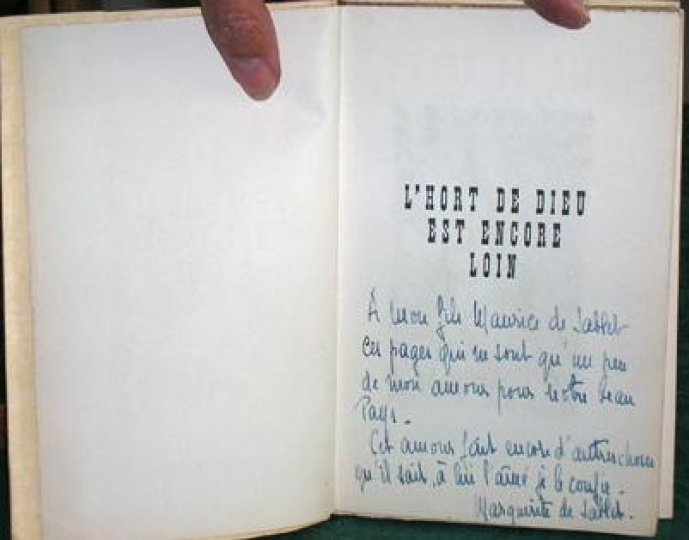 L'HORT DE DIEU
EST ENCORE
LOIN
À mon fils Maurice de Sablet
Ces pages qui ne sont qu'un peu
de mon amour pour notre beau
Pays.
Cet amour fait encore d'autres choses
qu'il sait, à lui l'aîné je le confie.
Marguerite de Sablet.